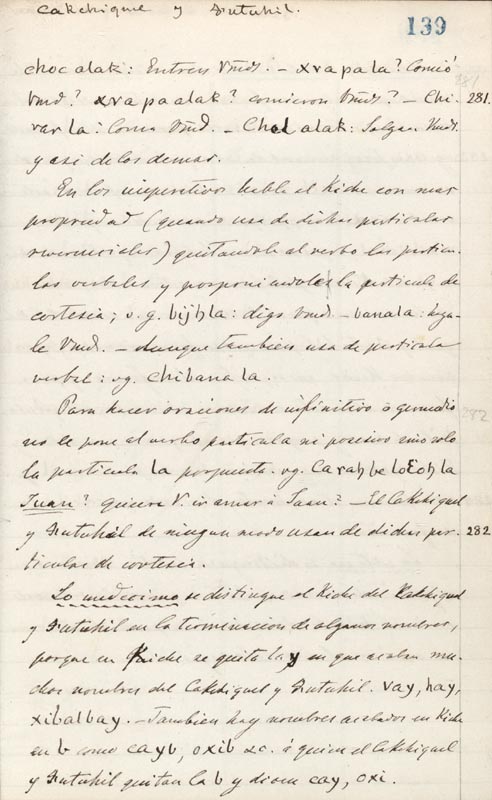 Cakchiquel y Zutuhil.
139
choc alak: Entren Vmds. — xvapala? Comió
Vmd? xvapaalak? comieron Vmds? — Chi- 281.
varla: Coma Vmd. — Chel alak: Salgan Vmds.
y asi de los demas.
En los imperativos habla el Kiche con mas
propriedad (quando usa de dichas particulas
reverenciales) quitandole al verbo las particu-
las verbales y posponiendoles la particula de
cortesia; v. g. bijhla: diga Vmd — banala: haga-
le Vmd. — Aunque tambien usa de particula
verbal: vg. chibanala.
Para hacer oraciones de infinitivo ó gerundio 282
no le pone al verbo particula ni posesivo sino solo
la particula la pospuesta. vg.
Juan? quiere V. ir amar á Juan? — El Cakchiquel
y Zutuhil de ningun modo usan de dichas par- 282
ticulas de cortesia.
Lo undecimo se distingue el Kiche del Cakchiquel
y Zutuhil en la terminacion de algunos nombres,
porque en Kiche se quita la y en que acaban mu-
chos nombres del Cakchiquel y Zutuhil. vay, hay,
xibalbay. — Tambien hay nombres acabados en Kiche
en b como cayb, oxib &c. á quien el Cakchiquel
y Zutuhil quitan la b y dicen cay, oxi.